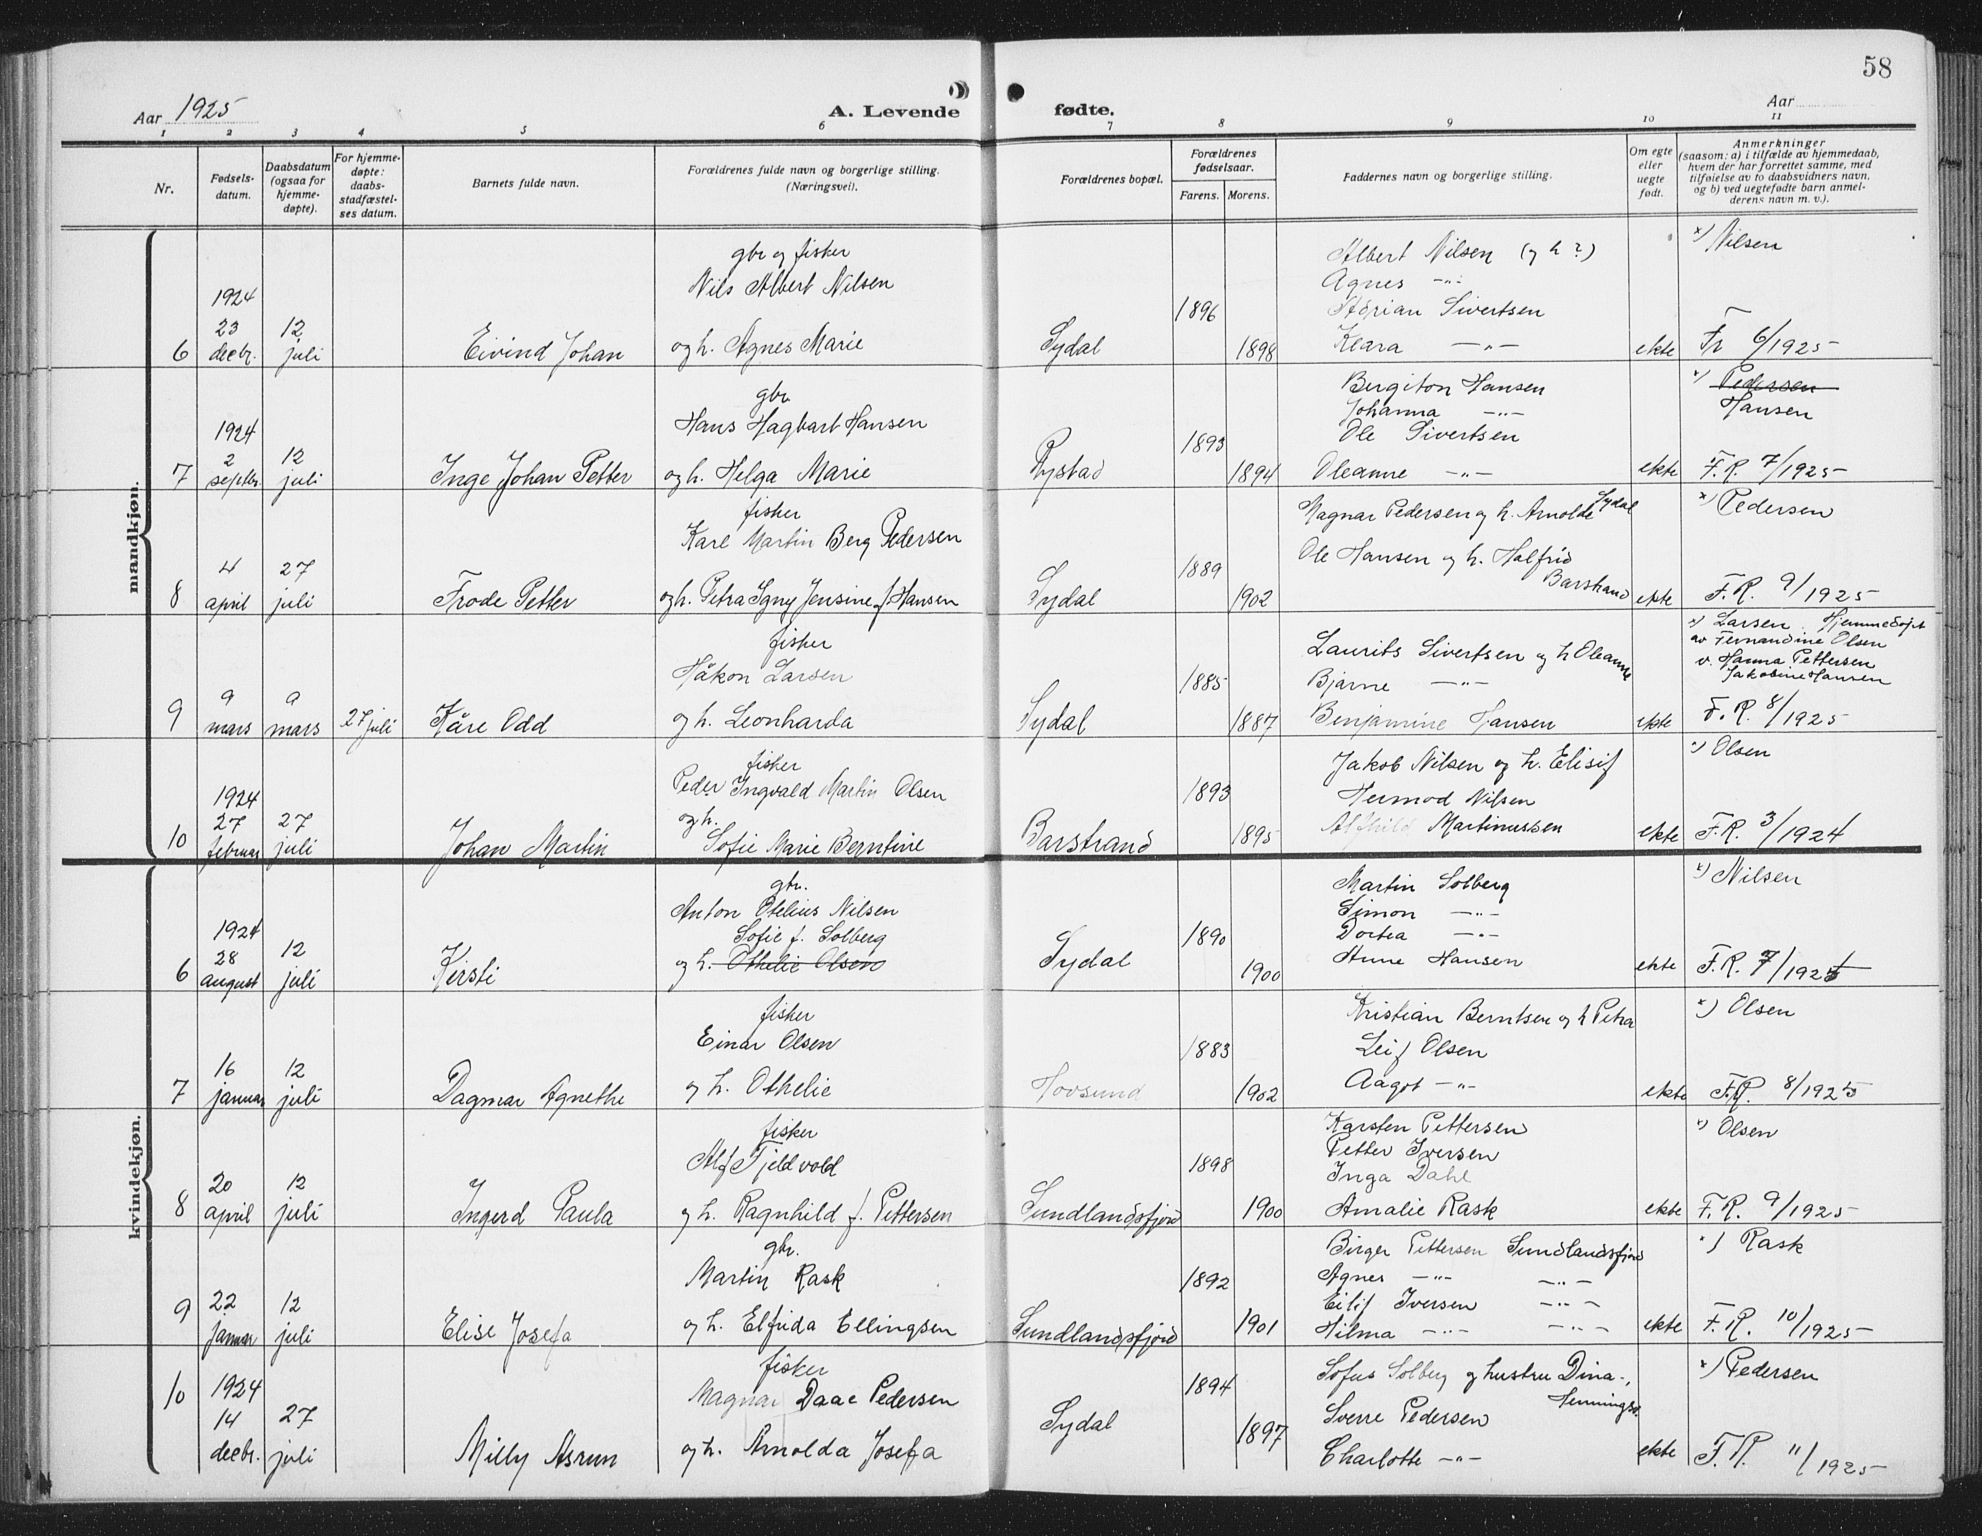 58
Aar 1925
A. Levende fødte.
Aar
1 2 3 4 5 6 7 8 9 10 11
Nr.
Fødsels-
datum.
Daabsdatum
(ogsaa for
hjemme-
døpte).
For hjemme-
døpte:
daabs-
stadfæstel-
ses datum.
Barnets fulde navn.
Forældrenes fulde navn og borgerlige stilling.
(Næringsvei).
Forældrenes bopæl.
Forældrenes
fødselsaar.
Farens. Morens.
Faddernes navn og borgerlige stilling.
Om egte
eller
uegte
født.
Anmerkninger
(saasom: a) i tilfælde av hjemmedaab,
hvem der har forrettet samme, med
tilføielse av to daabsvidners navn,
og b) ved uegtefødte barn anmel-
derens navn m. v.).
mandkjøn.
6
1924
23
decbr.
12
juli
Eivind Johan
gbr og fisker
Nils Albert Nilsen
og h. Agnes Marie
Sydal
1896
1898
Albert Nilsen (og h?)
Agnes -"-
Adrian Sivertsen
Klara -"-
ekte
x) Nilsen
Fr 6/1925
7
1924
2
septbr.
12
juli
Inge Johan Petter
gbr
Hans Hagbart Hansen
og h. Helga Marie
Rystad
1893
1894
Bergiton Hansen
Johanna -"-
Ole Sivertsen
Oleanne -"-
ekte
x) Pedersen
Hansen
F.R. 7/1925
8
4
april
27
juli
Frode Petter
fisker
Karl Martin Berg Pedersen
og h. Petra Signy Jensine f. Hansen
Sydal
1889
1902
Magnar Pedersen og h. Arnolde Sydal
Ole Hansen og h. Halfrid
Barstrand
ekte
x) Pedersen
F.R. 9/1925
9
9
mars
9
mars
27 juli
Kåre Odd
fisker
Håkon Larsen
og h. Leonharda
Sydal
1885
1887
Laurits Sivertsen og h Oleanne
Bjarne -"-
Benjamine Hansen
ekte
x) Larsen. Hjemmedøpt
av Fernandine Olsen
v. Hanna Pettersen
Jakobine Hansen
F.R. 8/1925
10
1924
27
februar
27
juli
Johan Martin
fisker
Peder Ingvald Martin Olsen
og h.
Sofie Marie Berntine
Barstrand
1893
1895
Jakob Nilsen og h. Elisif
Hermod Nilsen
Alfhild Martinussen
ekte
x) Olsen
F.R. 3/1924
kvindekjøn.
6
1924
28
august
12
juli
Kirsti
gbr.
Anton Otelius Nilsen
Sofie f. Solberg
og h. Othelie Olsen
Sydal
1890
1900
Martin Solberg
Simon -"-
Dortea -"-
Anne Hansen
ekte
x) Nilsen
F.R. 7/1925
7
16
januar
12
juli
Dagmar Agnethe
fisker
Einar Olsen
og h. Othelie
Hovsund
1883
1902
Kristian Berntsen og h Petra
Leif Olsen
Aagot -"-
ekte
x) Olsen
F.R. 8/1925
8
20
april
12
juli
Ingerd Paula
fisker
Alf Fjeldvold
og h. Ragnhild f. Pettersen
Sundlandsfjord
1898
1900
Karsten Pettersen
Petter Iversen
Inga Dahl
Amalie Rask
ekte
x) Olsen
F.R. 9/1925
9
22
januar
12
juli
Elise Josefa
gbr.
Martin Rask
og h. Elfrida Ellingsen
Sundlandsfjord
1892
1901
Birger Pettersen Sundlandsfjord
Agnes -"- -"-
Eilif Iversen -"-
Hilma -"- -"-
ekte
x) Rask
F.R. 10/1925
10
1924
14
decbr.
27
juli
Milly Asrun
fisker
Magnar Daae Pedersen
og h. Arnolda Josefa
Sydal
1894
1897
Sofus Solberg og hustru Dina-,
Henningsv.
Sverre Pedersen
Charlotte -"-
ekte
x) Pedersen
F.R. 11/1925